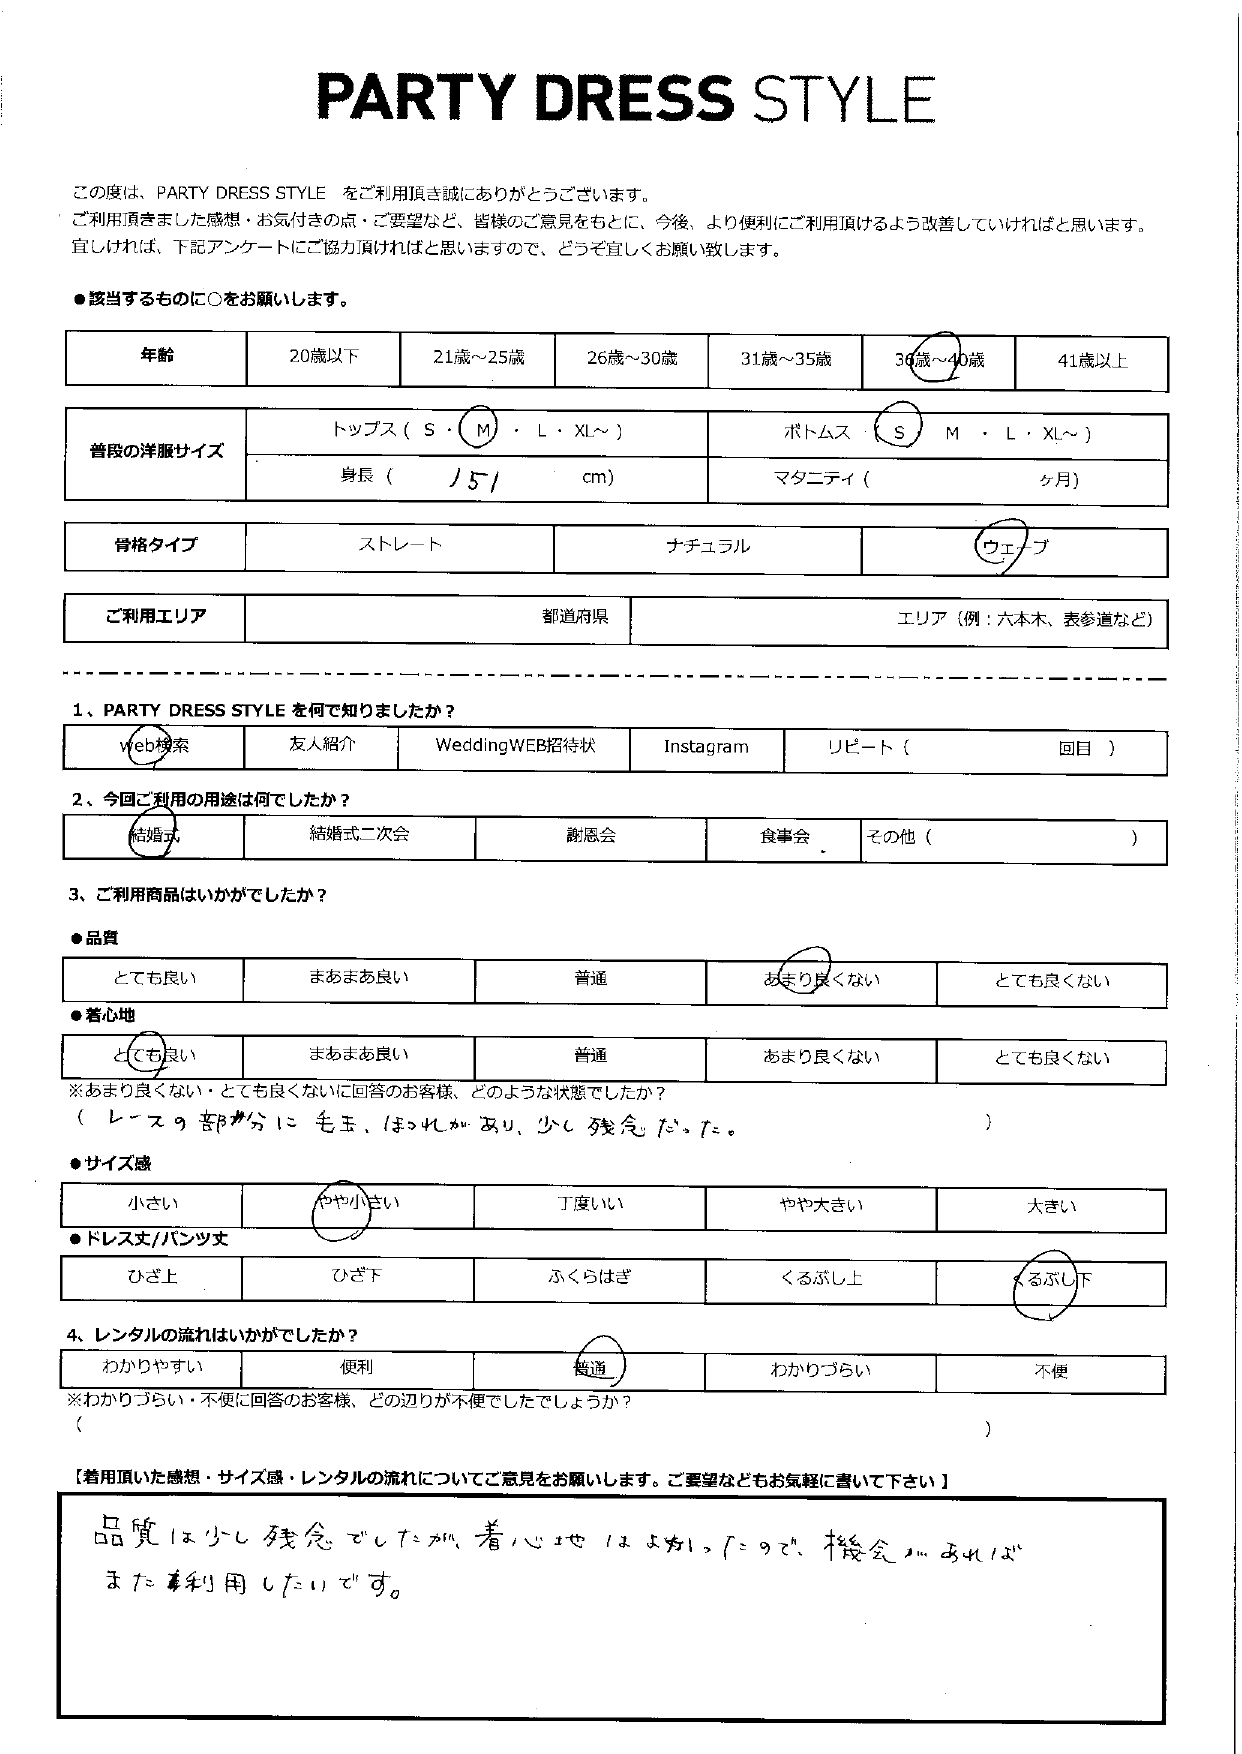 PARTY DRESS STYLE
この度は、PARTY DRESS STYLE をご利用頂き誠にありがとうございます。
ご利用頂きました感想・お気付きの点・ご要望など、皆様のご意見をもとに、今後、より便利にご利用頂けるよう改善していければと思います。
宜しければ、下記アンケートにご協力頂ければと思いますので、どうぞ宜しくお願い致します。
●該当するものに○をお願いします。
年齢 20歳以下 21歳～25歳 26歳～30歳 31歳～35歳 36歳～40歳 41歳以上
普段の洋服サイズ トップス ( S ・ M ・ L ・ XL～ ) ボトムス ( S M ・ L ・ XL～ )
身長 ( 151 cm) マタニティ ( ヶ月)
骨格タイプ ストレート ナチュラル ウェーブ
ご利用エリア 都道府県 エリア（例：六本木、表参道など）
1、PARTY DRESS STYLE を何で知りましたか？
web検索 友人紹介 WeddingWEB招待状 Instagram リピート ( 回目 )
2、今回ご利用の用途は何でしたか？
結婚式 結婚式二次会 謝恩会 食事会 その他 ( )
3、ご利用商品はいかがでしたか？
●品質
とても良い まあまあ良い 普通 あまり良くない とても良くない
●着心地
とても良い まあまあ良い 普通 あまり良くない とても良くない
※あまり良くない・とても良くないに回答のお客様、どのような状態でしたか？
( レースの部分に毛玉、ほつれがあり、少し残念だった。 )
●サイズ感
小さい やや小さい 丁度いい やや大きい 大きい
●ドレス丈/パンツ丈
ひざ上 ひざ下 ふくらはぎ くるぶし上 くるぶし下
4、レンタルの流れはいかがでしたか？
わかりやすい 便利 普通 わかりづらい 不便
※わかりづらい・不便に回答のお客様、どの辺りが不便でしたでしょうか？
( )
【着用頂いた感想・サイズ感・レンタルの流れについてご意見をお願いします。ご要望などもお気軽に書いて下さい】
品質は少し残念でしたが、着心地はよかったので、機会があれば
また利用したいです。